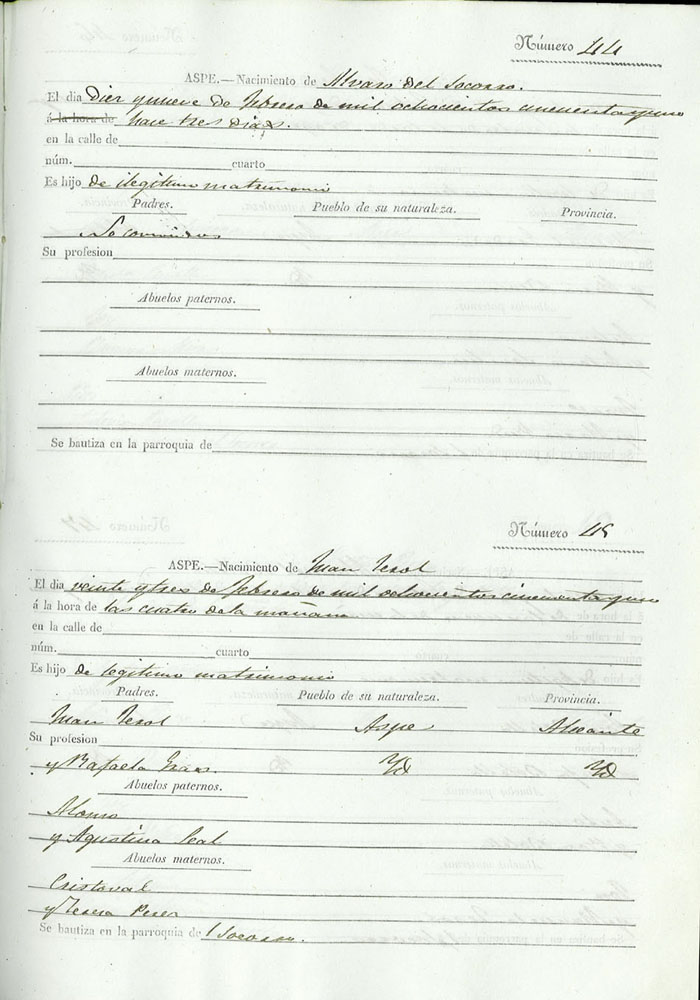 Número 44
ASPE.—Nacimiento de Alvaro del Socorro.
El dia Diez y nueve de Febrero de mil ochocientos cincuenta y uno
á la hora de hace tres dias.
en la calle de
núm. cuarto
Es hijo de ilegitimo matrimonio
Padres. Pueblo de su naturaleza. Provincia.
Su profesion
Abuelos paternos.
Abuelos maternos.
Se bautiza en la parroquia de
Número 45
ASPE.—Nacimiento de Juan Terol
El dia veinte y tres de Febrero de mil ochocientos cincuenta y uno
á la hora de las cuatro de la mañana
en la calle de
núm. cuarto
Es hijo de legitimo matrimonio
Padres. Pueblo de su naturaleza. Provincia.
Juan Terol Aspe Alicante
Su profesion
y Rafaela Yd Yd
Abuelos paternos.
Alonso
y Agustina Leal
Abuelos maternos.
Cristoval
y Teresa Perez
Se bautiza en la parroquia de l Socorro.